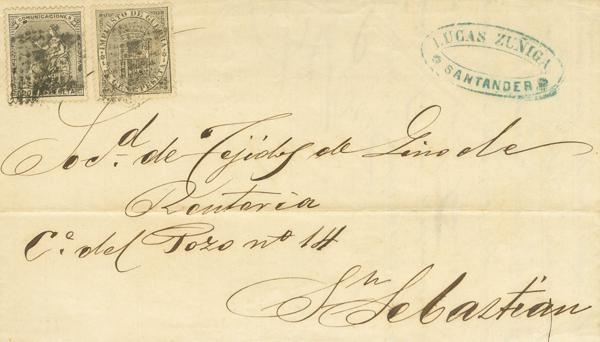 COMUNICACIONES
IMPUESTO DE GUERRA
LUCAS ZUÑIGA
SANTANDER
Soc.d de Tejidos de Lino de
Renteria
C.ª del Pozo nº 14
Sn Sebastian